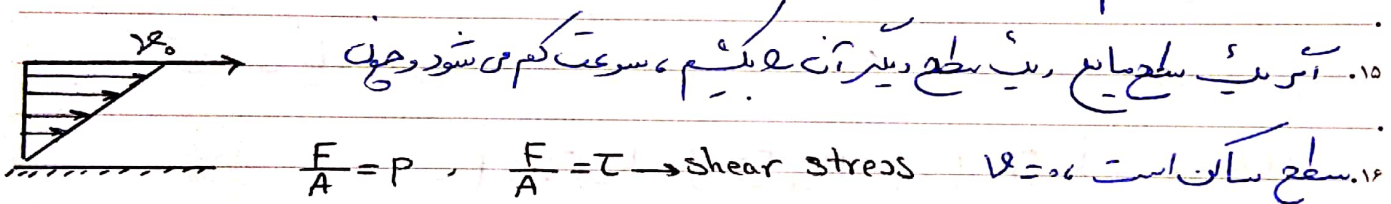 ۱۵. اگر یک سطح مایع روی سطح دیگر آن بکشیم، سرعت کم می شود و چون v₀
۱۶. سطح ساکن است، v=0 F/A = P , F/A = τ → shear stress